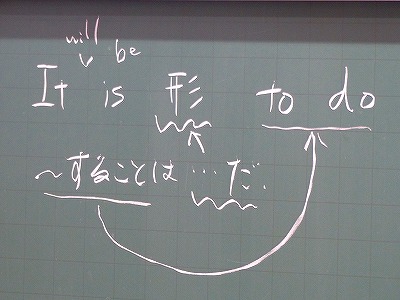 will be
It is 形 to do
～することは…だ.